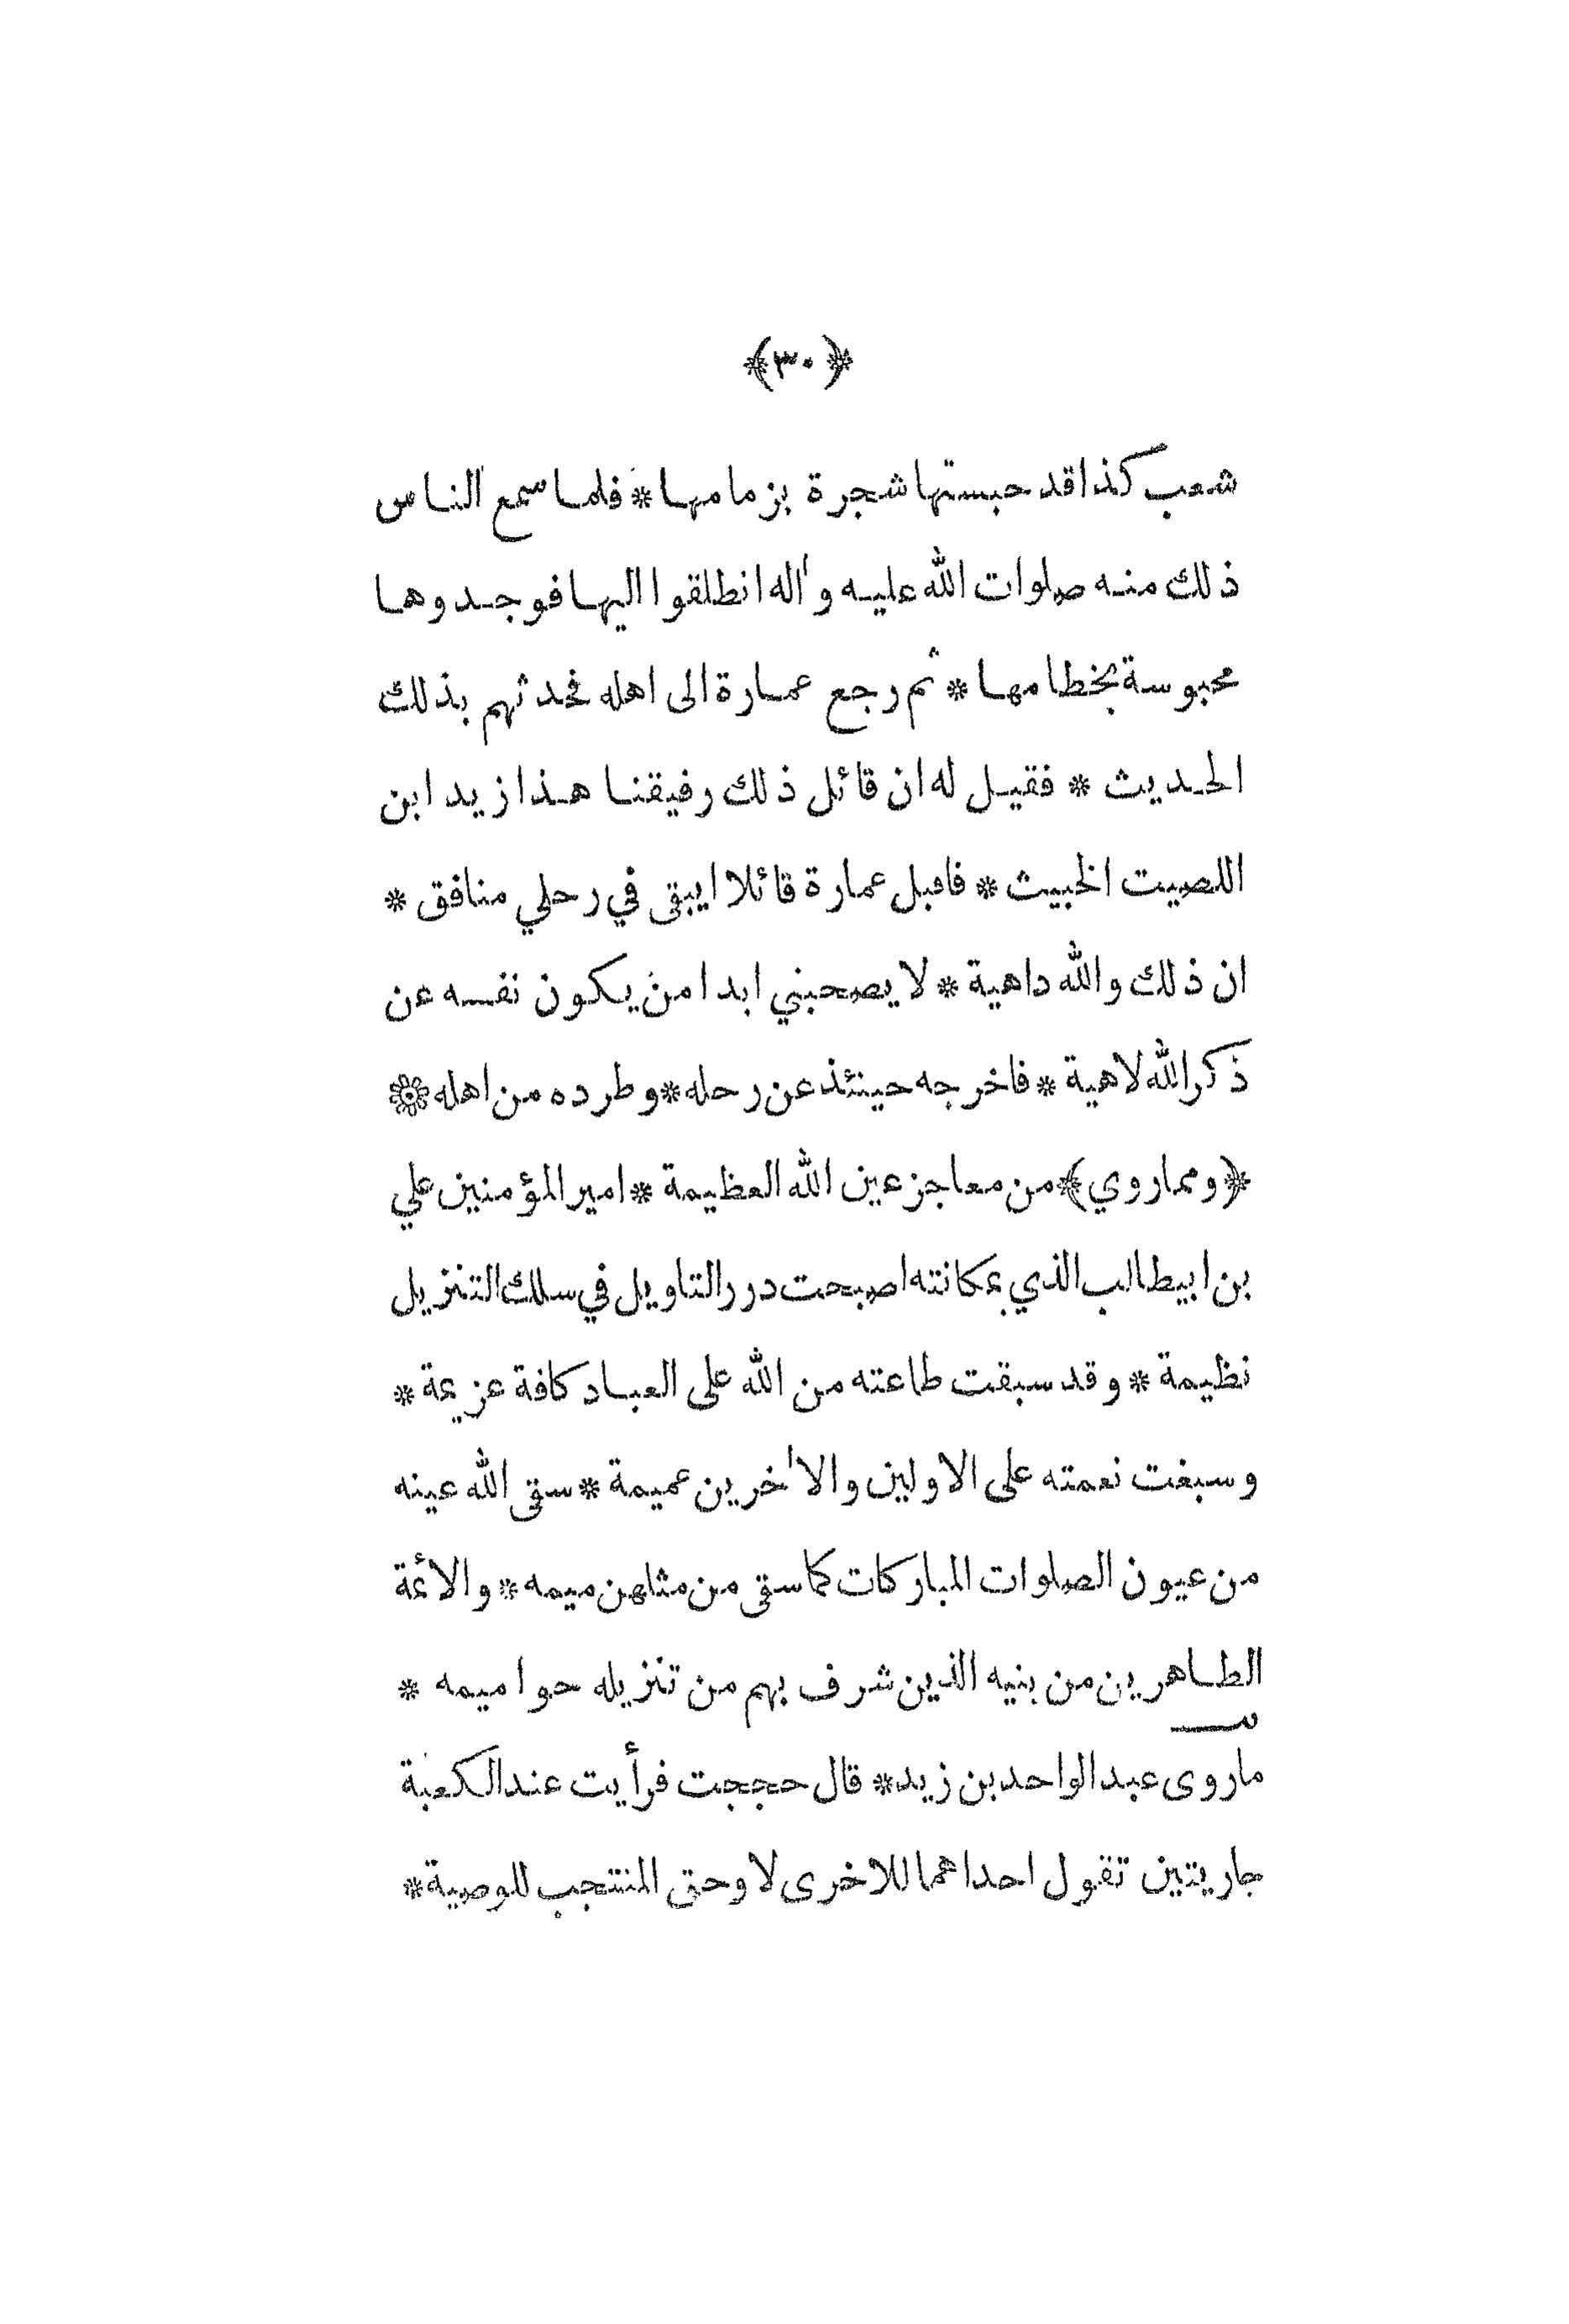 ﴿٣٠﴾
شعب كذا قد حبستها شجرة بزمامها * فلما سمع الناس
ذلك منه صلوات الله عليه واٰله انطلقوا اليها فوجدوها
محبوسة بخطامها * ثم رجع عمارة الى اهله فحدثهم بذلك
الحديث * فقيل له ان قائل ذلك رفيقنا هذا زيد ابن
اللصيت الخبيث * فاقبل عمارة قائلا ايبقى في رحلي منافق *
ان ذلك والله داهية * لا يصحبني ابدا من يكون نفسه عن
ذكر الله لاهية * فاخرجه حينئذ عن رحله * وطرده من اهله ۞
﴿ومما روي﴾ من معاجز عين الله العظيمة * امير المؤمنين علي
بن ابيطالب الذي بمكانته اصبحت درر التاويل في سلك التنزيل
نظيمة * وقد سبقت طاعته من الله على العباد كافة عزيمة *
وسبغت نعمته على الاولين والاٰخرين عميمة * سقى الله عينه
من عيون الصلوات المباركات كما سقى من مثلهن ميمه * والأئمة
الطاهرين من بنيه الذين شرف بهم من تنزيله حواميمه *
ما روى عبد الواحد بن زيد * قال حججت فرأيت عند الكعبة
جاريتين تقول احداهما للاخرى لا وحق المنتجب للوصية *